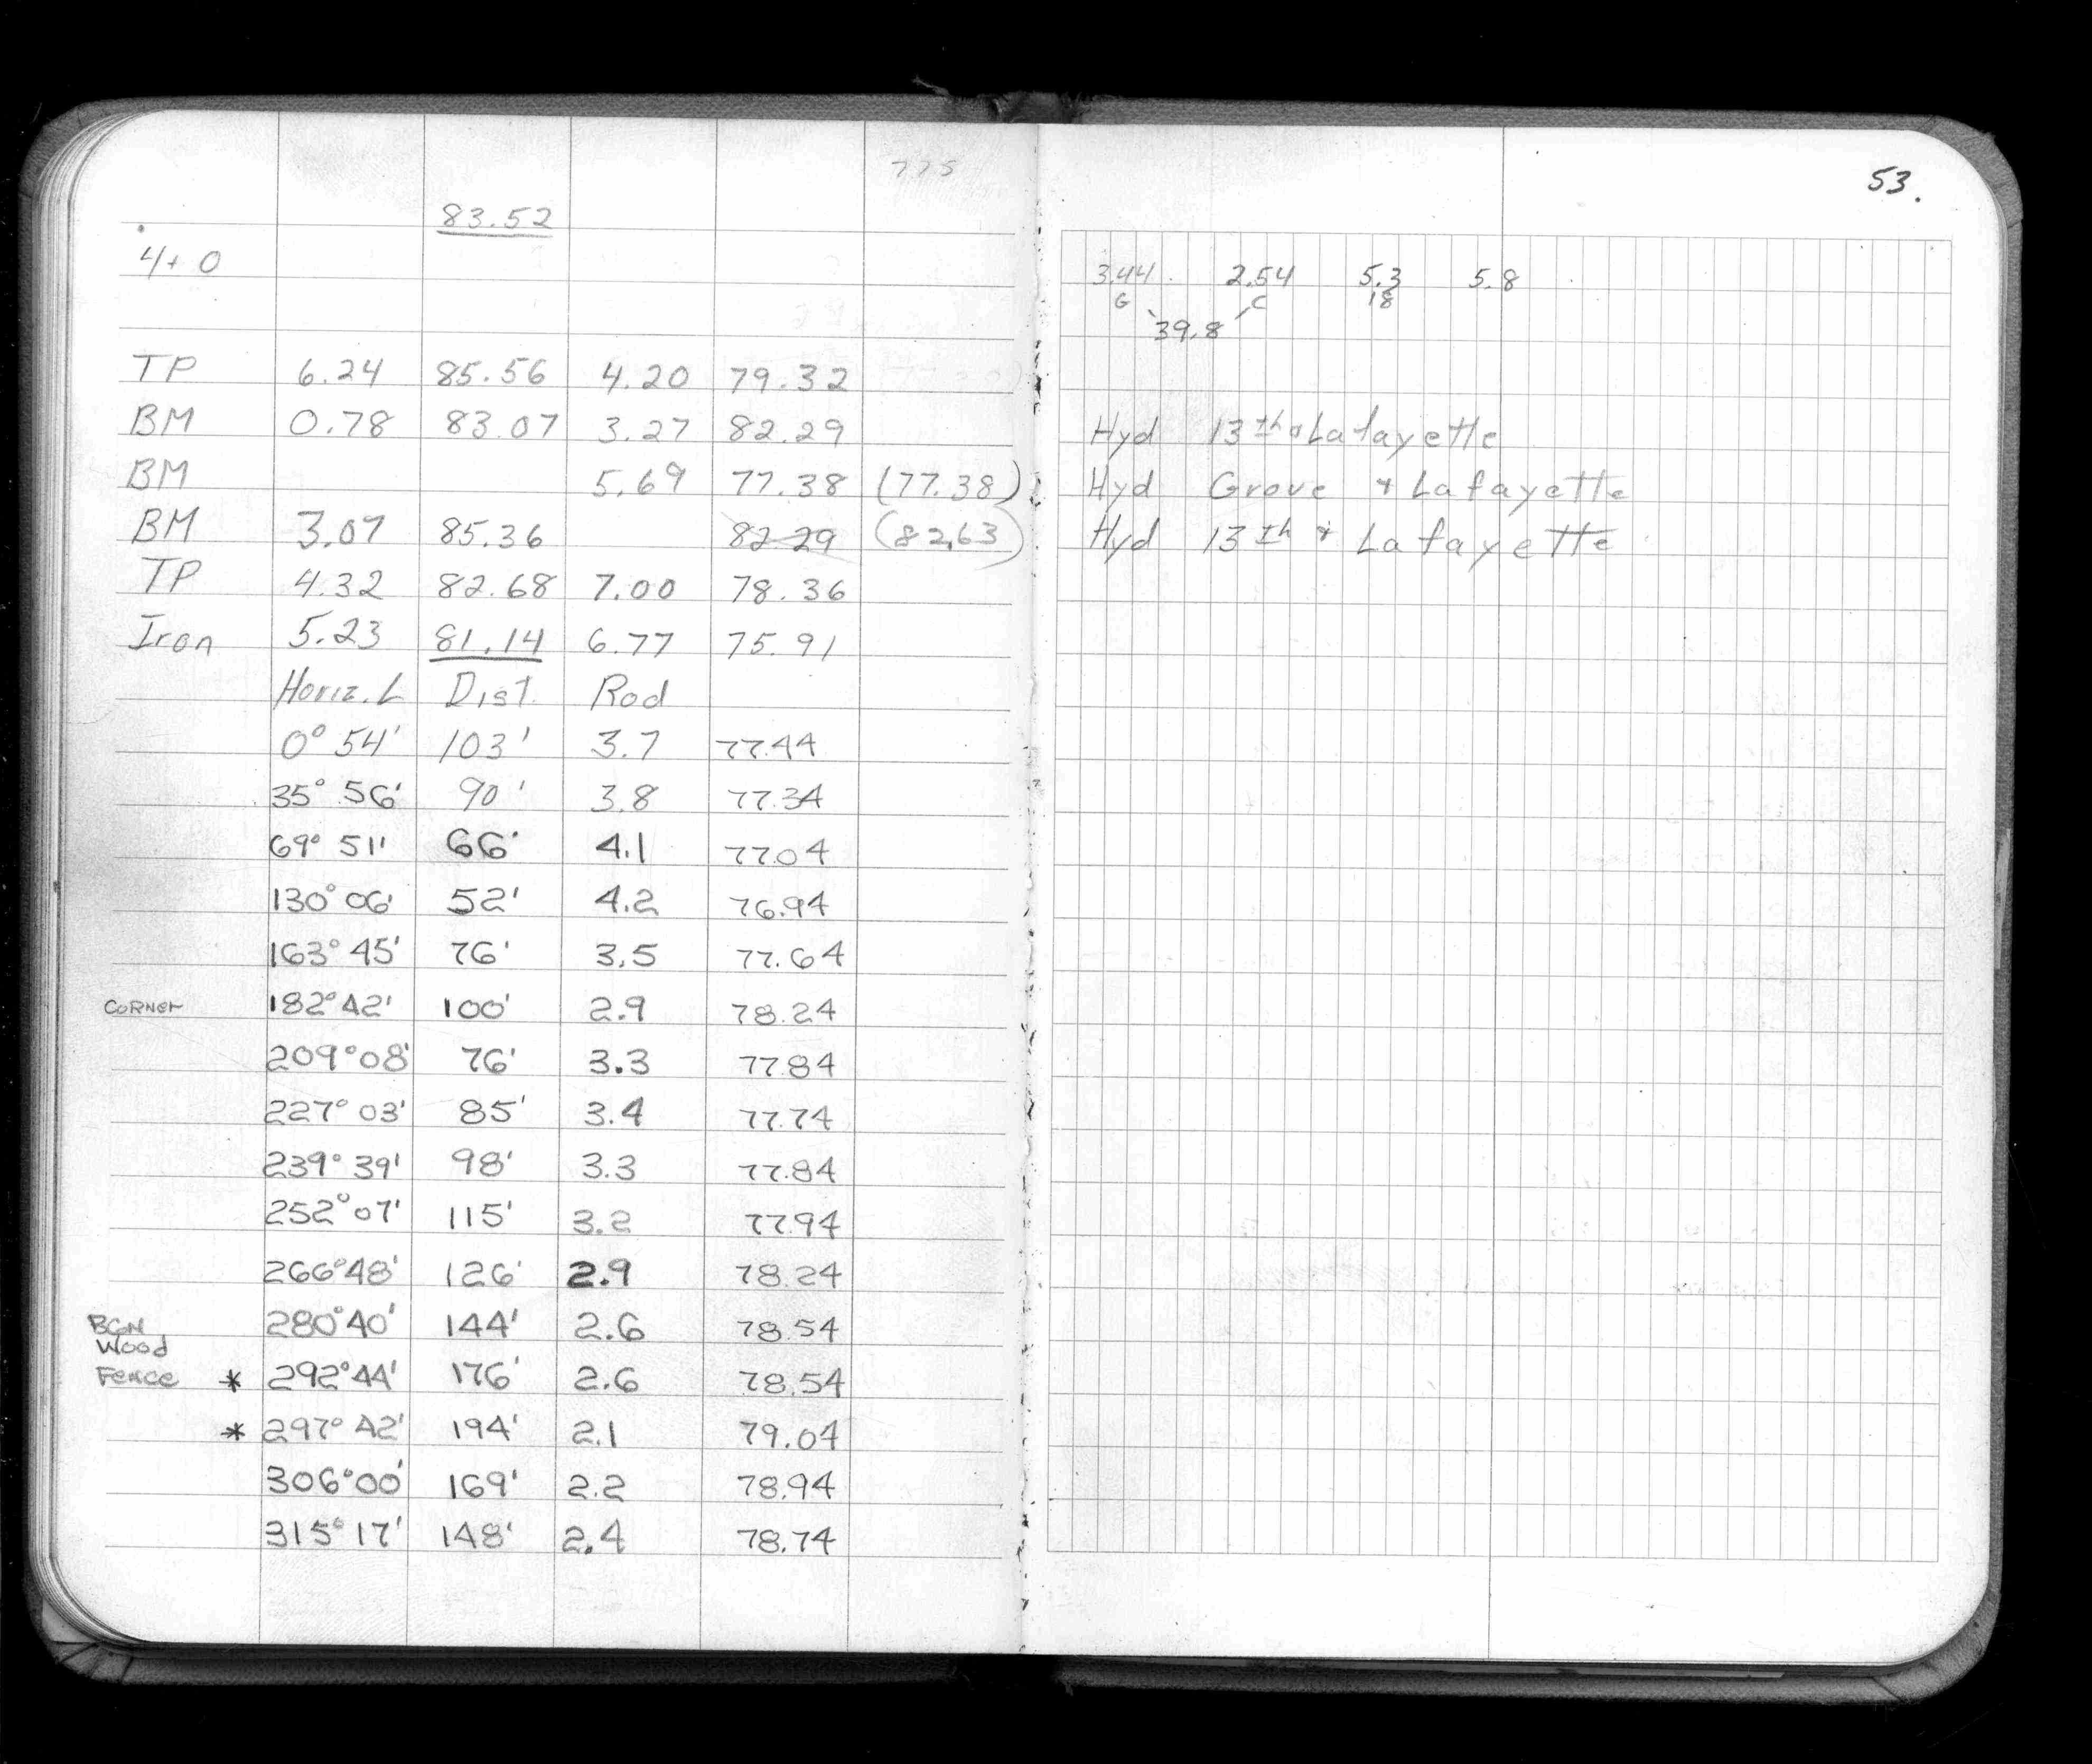 775
53.
83.52
4+0 3.44 2.54 5.3 5.8
G C 18
39.8
TP 6.24 85.56 4.20 79.32
BM 0.78 83.07 3.27 82.29 Hyd 13th & Lafayette
BM 5.69 77.38 (77.38) Hyd Grove & Lafayette
BM 3.07 85.36 82.29 (82.63) Hyd 13th & Lafayette
TP 4.32 82.68 7.00 78.36
Iron 5.23 81.14 6.77 75.91
Horiz. L Dist. Rod
0° 54' 103' 3.7 77.44
35° 56' 90' 3.8 77.34
69° 51' 66' 4.1 77.04
130° 06' 52' 4.2 76.94
163° 45' 76' 3.5 77.64
CORNER 182° 42' 100' 2.9 78.24
209° 08' 76' 3.3 77.84
227° 03' 85' 3.4 77.74
239° 39' 98' 3.3 77.84
252° 07' 115' 3.2 77.94
266° 48' 126' 2.9 78.24
BGN 280° 40' 144' 2.6 78.54
Wood
Fence * 292° 44' 176' 2.6 78.54
* 297° 42' 194' 2.1 79.04
306° 00' 169' 2.2 78.94
315° 17' 148' 2.4 78.74